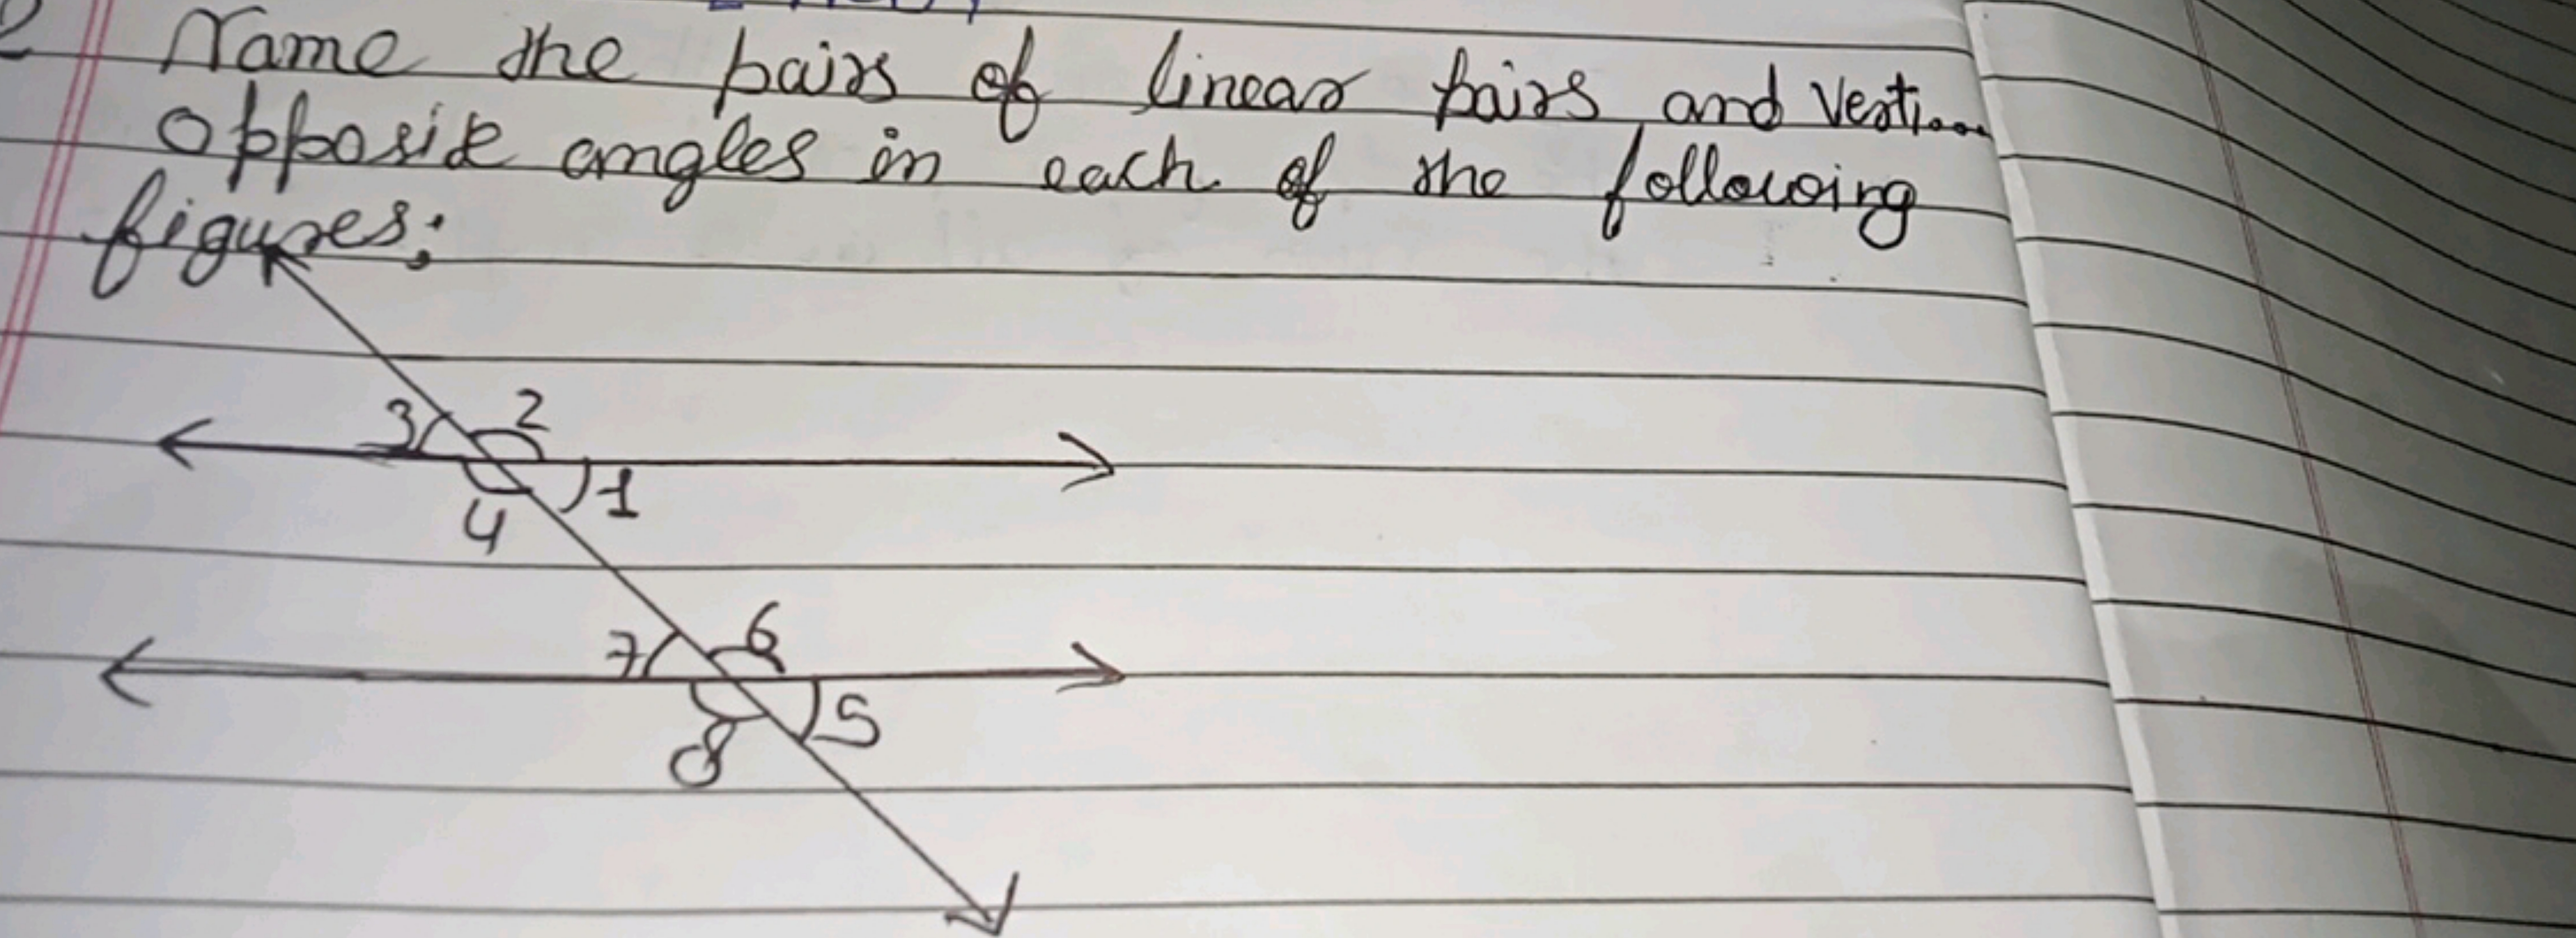 2 Name the pairs of linear pairs and Verti...
opposite angles in each of the following
figures:
3 2
1
4
7 6
5
8